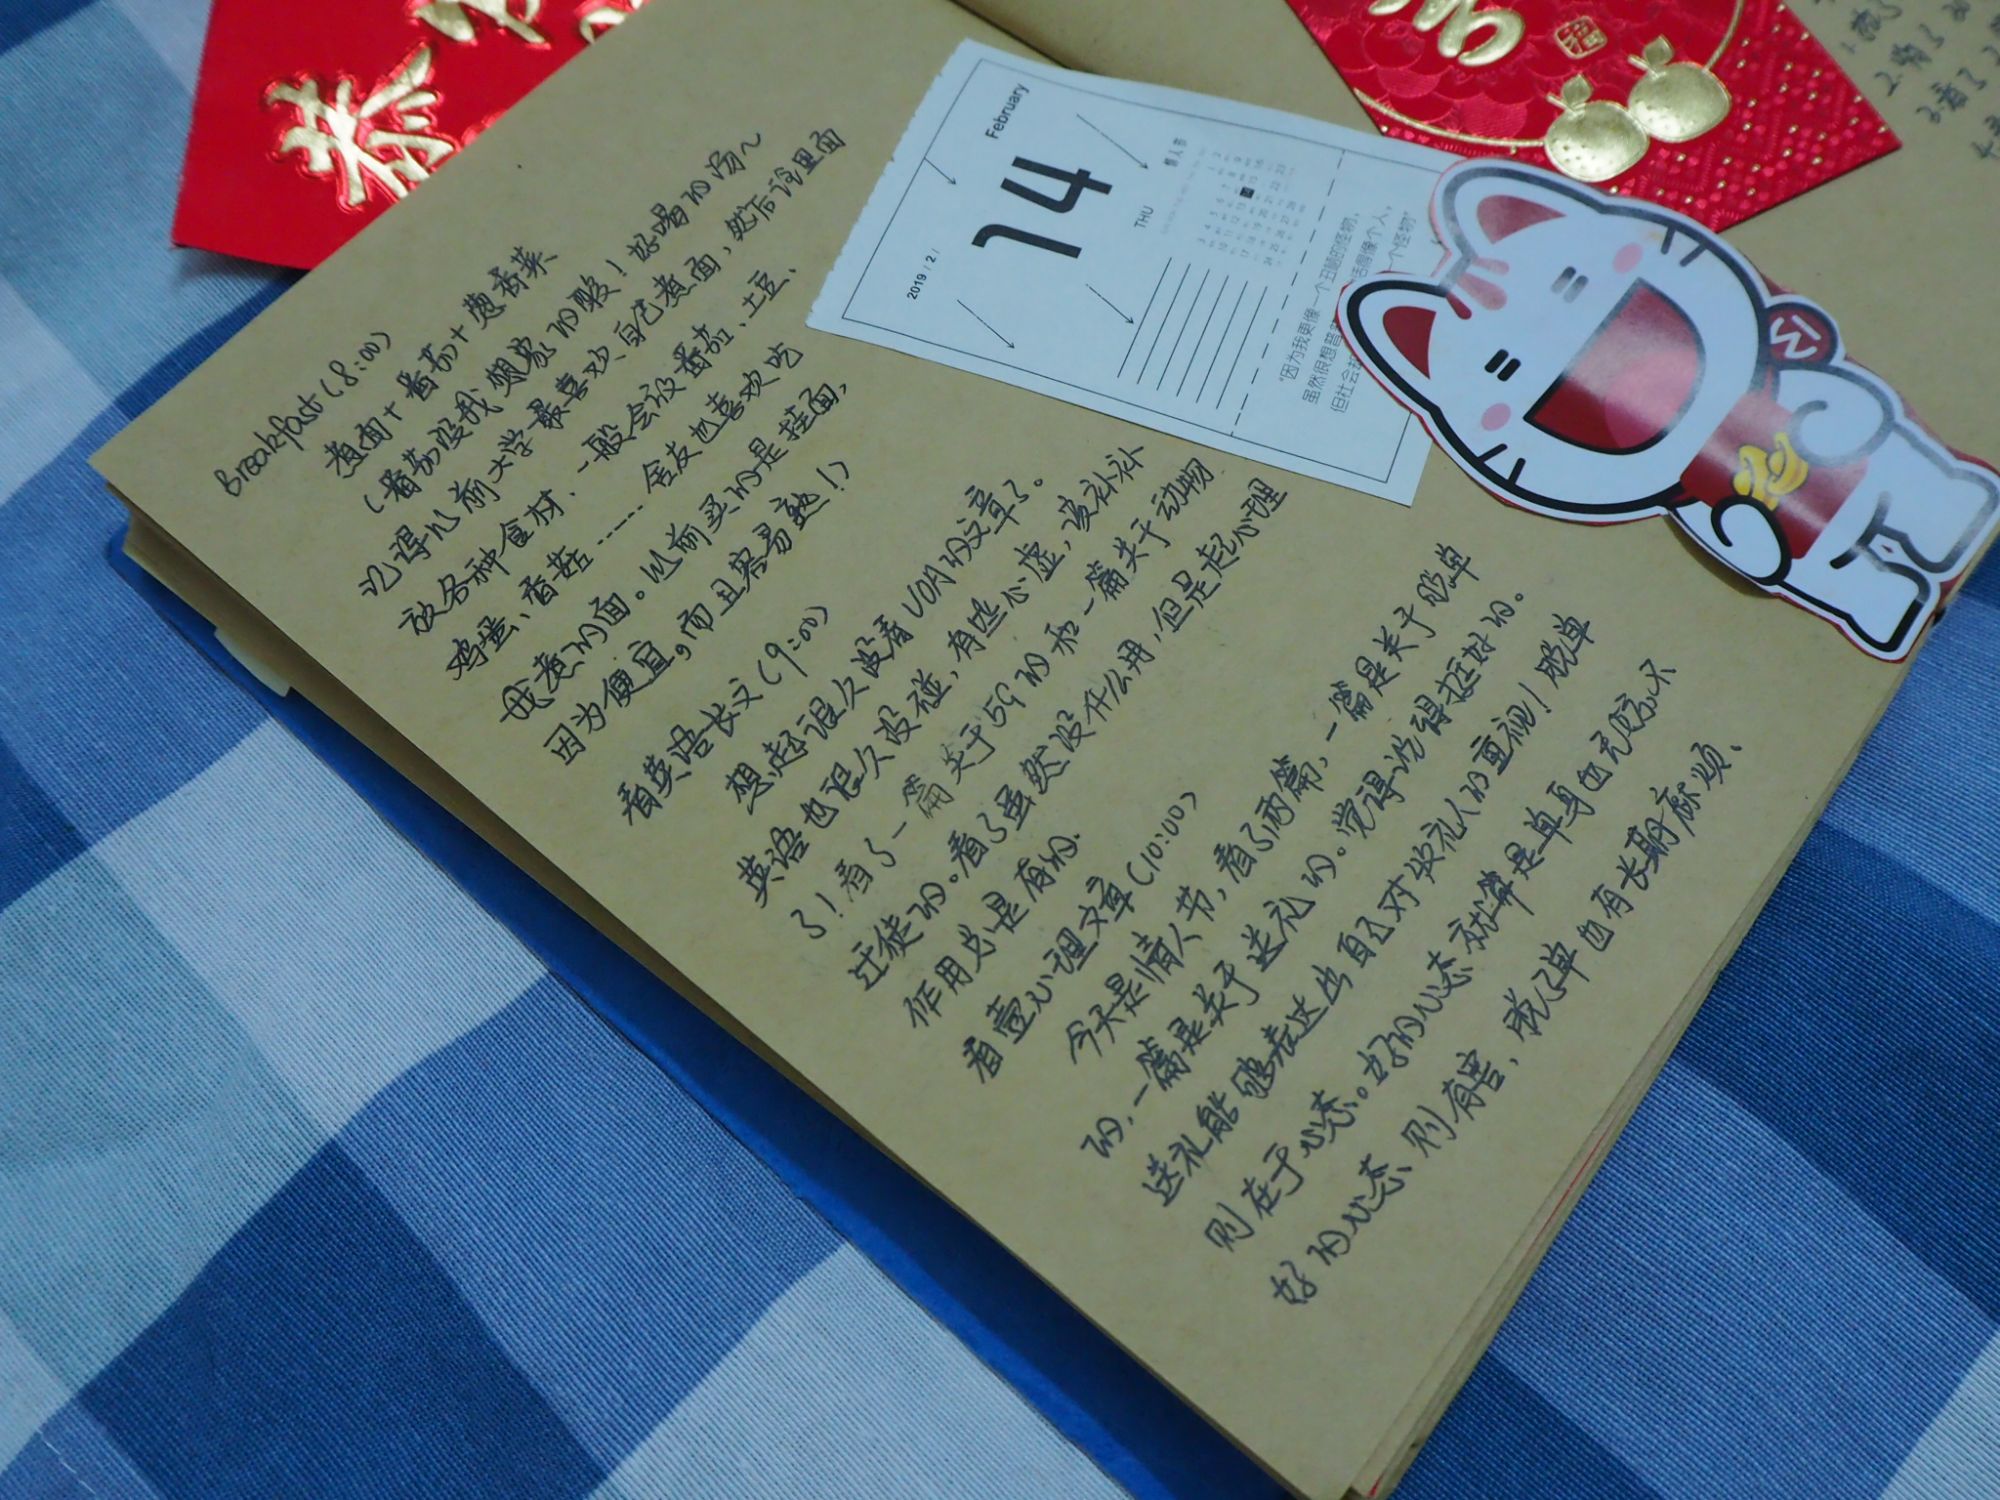 恭
Breakfast (8:00)
煮面+番茄+葱香菜
(番茄没我想象的酸！好喝的汤～
记得以前大学最喜欢自己煮面，然后往里面
放各种食材，一般会放番茄、土豆、
鸡蛋、香菇……舍友也喜欢吃
我煮的面。以前买的是挂面，
因为便宜，而且容易熟！)
看英语长文 (9:00)
想起很久没看VOA的文章了。
英语也很久没碰，有些心虚，该补补
了！看了一篇关于5G的和一篇关于动物
迁徙的。看了虽然没什么用，但是起心理
作用总是有的.
看壹心理文章 (10:00)
今天是情人节，看了两篇，一篇是关于脱单
的，一篇是关于送礼的。觉得说得挺好的。
送礼能够表达出自己对收礼人的重视！脱单
则在于心态。好的心态就算是单身也无妨，不
好的心态，则有害，脱了单也有长期麻烦、
February
14
2019 / 2 /
THU
情人节
"因为我更像一个丑陋的怪物，
虽然很想普
活得像个人，
但社会却
个怪物"
福